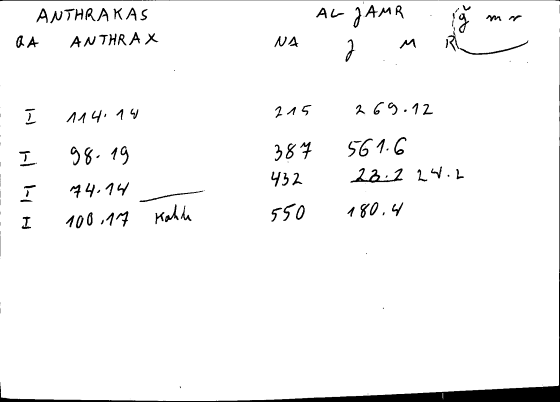 ANTHRAKAS AL JAMR ǧ m r
QA ANTHRAX NA J M R
I 114.14 215 269.12
I 98.19 387 561.6
I 74.14 432 23.2 24.2
I 100.17 550 180.4